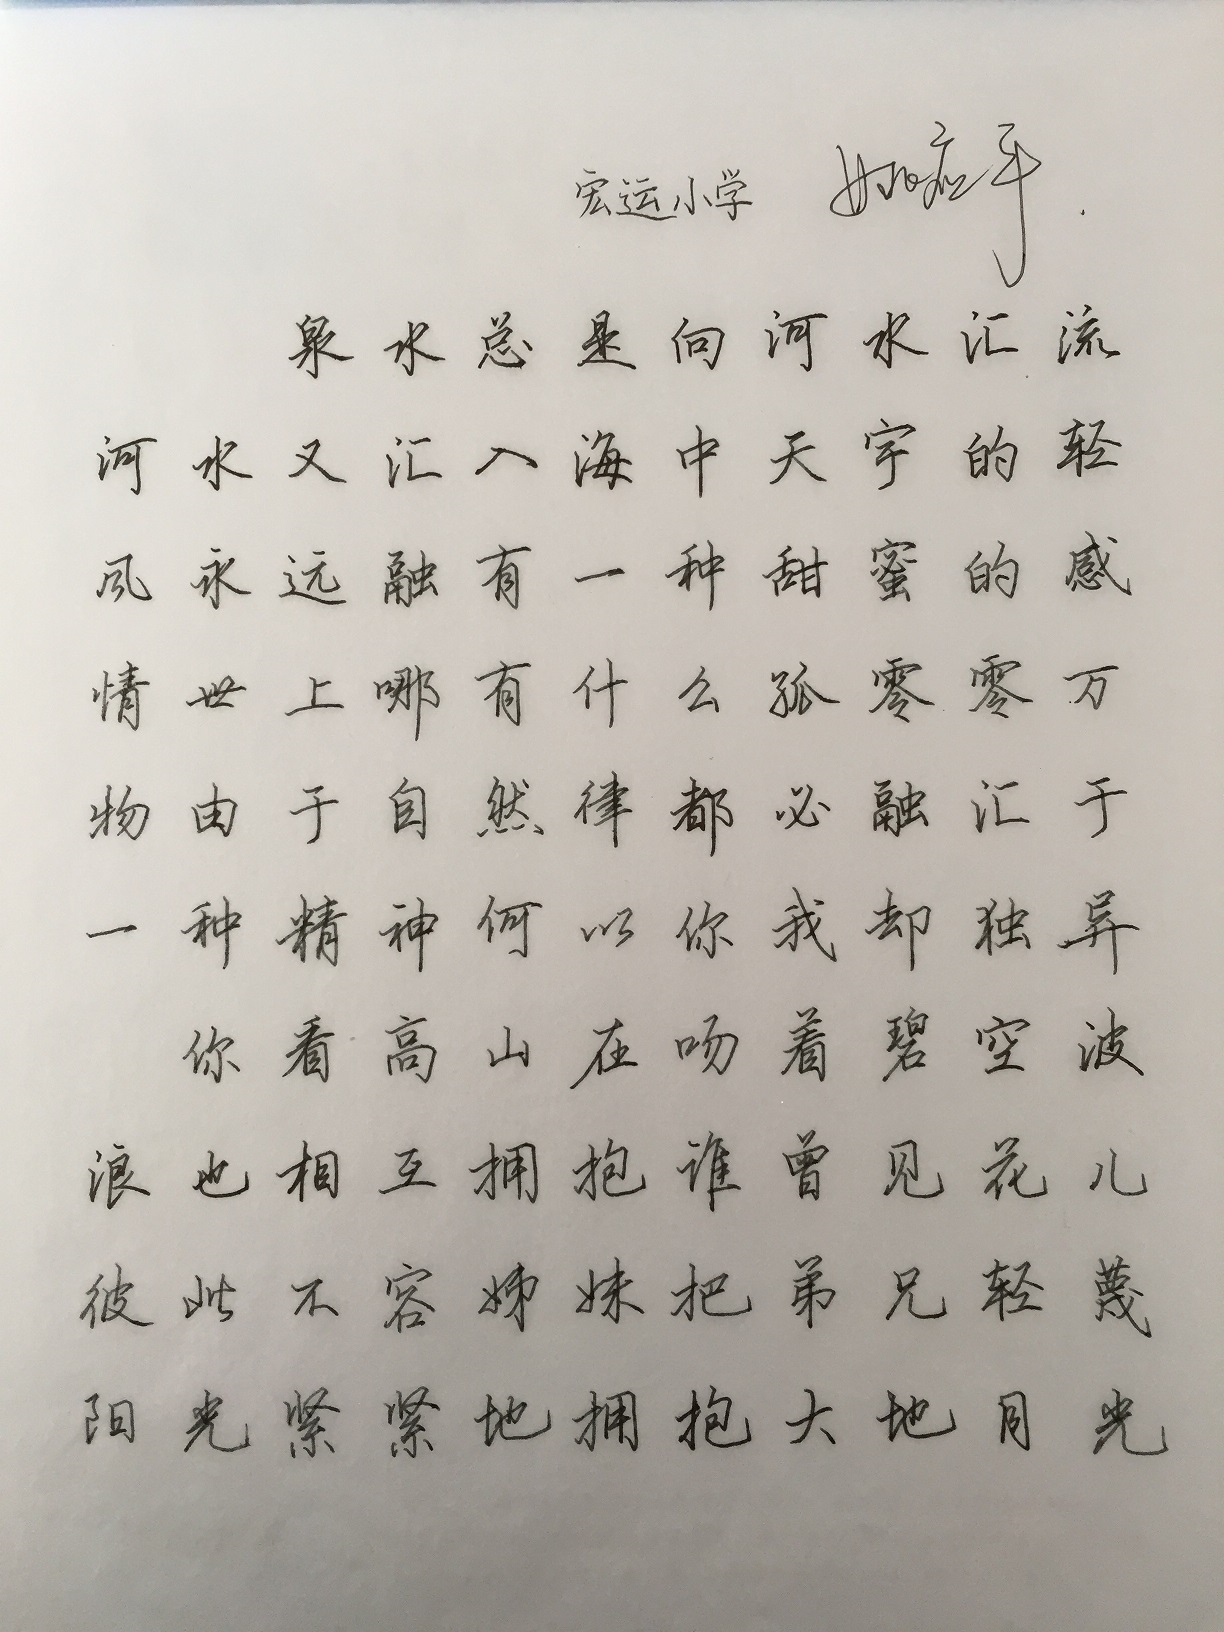 宏运小学
泉水总是向河水汇流
河水又汇入海中天宇的轻
风永远融有一种甜蜜的感
情世上哪有什么孤零零万
物由于自然律都必融汇于
一种精神何以你我却独异
你看高山在吻着碧空波
浪也相互拥抱谁曾见花儿
彼此不容姊妹把弟兄轻蔑
阳光紧紧地拥抱大地月光